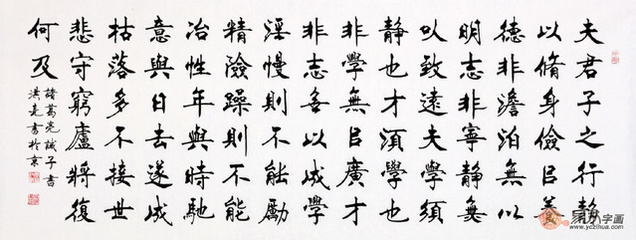 夫君子之行静
以脩身儉㠯養
德非澹泊無以
明志非寧靜無
以致遠夫學須
靜也才須學也
非學無㠯廣才
非志無以成學
淫慢則不能勵
精險躁則不能
冶性年與時馳
意與日去遂成
枯落多不接世
悲守窮廬將復
何及
諸葛亮誡子書
洪亮書於京
易从字画
www.yczihua.com